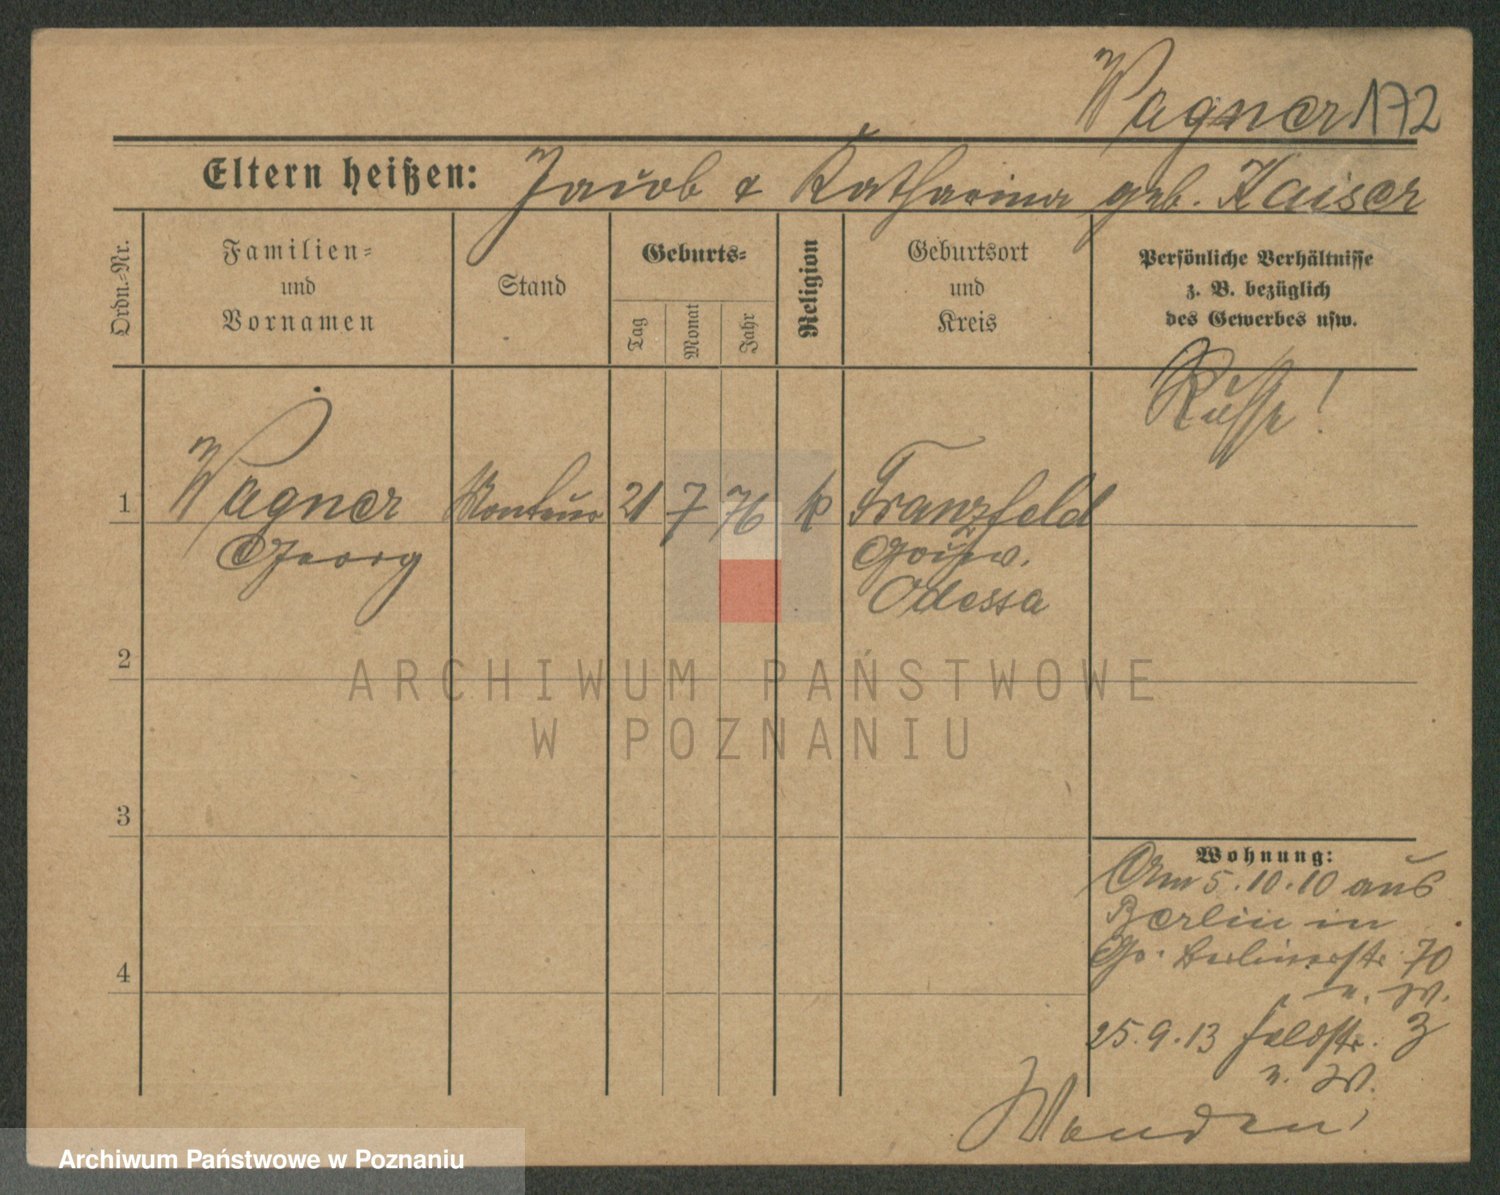 Wagner 172
Eltern heißen: Jacob & Katharina geb. Kaiser
Ordn.-Nr.
Familien- und Vornamen
Stand
Geburts-
Tag
Monat
Jahr
Religion
Geburtsort und Kreis
Persönliche Verhältnisse
z. B. bezüglich
des Gewerbes usw.
Russe!
1 Wagner Monteur 21 7 76 k Franzfeld
Georg Gouv.
Odessa
2
3
4
Wohnung:
Am 5.10.10 aus
Berlin in
Berlinerstr. 70
n. W.
25.9.13 Feldstr. 3
n. W.
ARCHIWUM PAŃSTWOWE
W POZNANIU
Archiwum Państwowe w Poznaniu